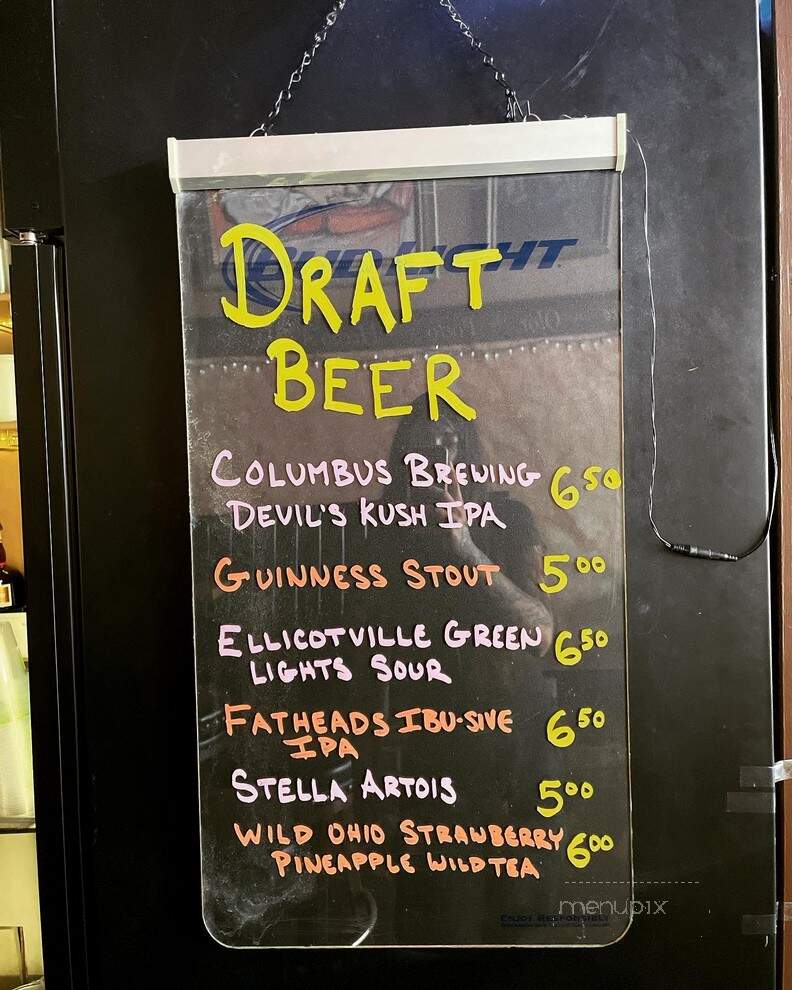 BUD LIGHT
DRAFT
BEER
COLUMBUS BREWING 6 50
DEVIL'S KUSH IPA
GUINNESS STOUT 5 00
ELLICOTVILLE GREEN 6 50
LIGHTS SOUR
FATHEADS IBU-SIVE 6 50
IPA
STELLA ARTOIS 5 00
WILD OHIO STRAWBERRY 6 00
PINEAPPLE WILD TEA
menupix
ENJOY RESPONSIBLY